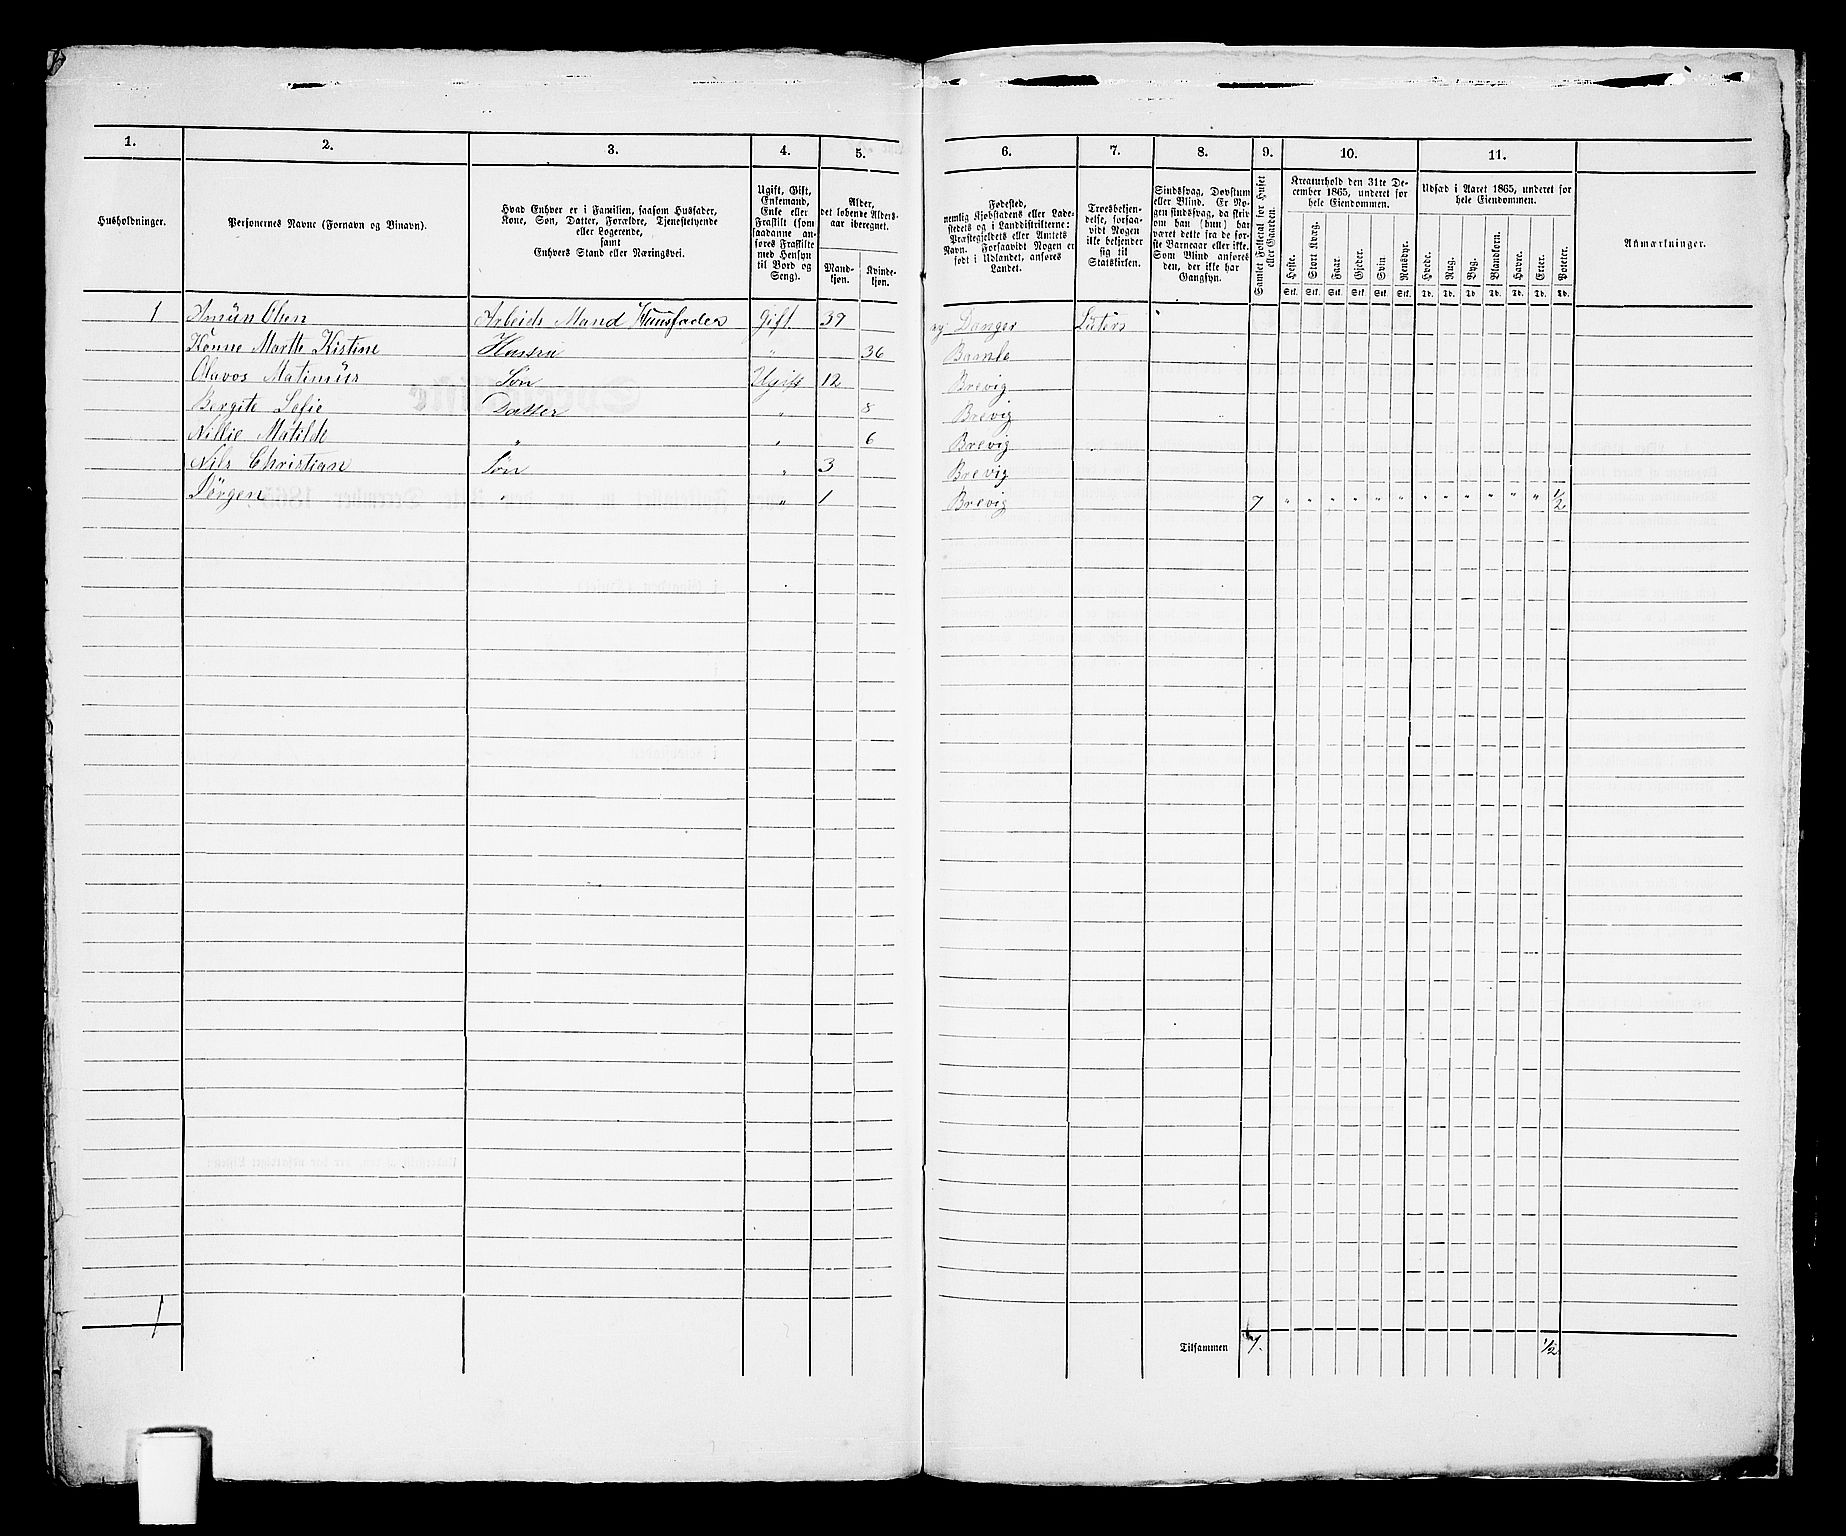 1. 2. 3. 4. 5. 6. 7. 8. 9. 10. 11.
Husholdninger.
Personernes Navne (Fornavn og Binavn).
Hvad Enhver er i Familien, saasom Husfader,
Kone, Søn, Datter, Forældre, Tjenestetyende
eller Logerende,
samt
Enhvers Stand eller Næringsvei.
Ugift, Gift,
Enkemand,
Enke eller
Fraskilt (som
saadanne an-
føres Fraskilte
med Hensyn
til Bord og
Seng).
Alder,
det løbende Alders-
aar iberegnet.
Mand-
kjøn.
Kvinde-
kjøn.
Fødested,
nemlig Kjøbstadens eller Lade-
stedets og i Landdistrikterne:
Præstegjeldets eller Amtets
Navn. Forsaavidt Nogen er
født i Udlandet, anføres
Landet.
Troesbekjen-
delse, forsaa-
vidt Nogen
ikke bekjender
sig til
Statskirken.
Sindssvag, Døvstum
eller Blind. Er No-
gen sindssvag, da skriv
om han (hun) har
været dette fra de før-
ste Barneaar eller ikke.
Som Blind anføres
den, der ikke har
Gangsyn.
Samlet Folketal for Huset
eller Gaarden.
Kreaturhold den 31te De-
cember 1865, underet for
hele Eiendommen.
Heste. Stort Kvæg. Faar. Gjeder. Svin. Rensdyr.
Stk. Stk. Stk. Stk. Stk. Stk.
Udsæd i Aaret 1865, underet for
hele Eiendommen.
Hvede. Rug. Byg. Blandkorn. Havre. Erter. Poteter.
Td. Td. Td. Td. Td. Td. Td.
Anmærkninger.
1 Amün Olsen Arbeids Mand Huusfader Gift. 39 Danger Luters
Konne Marthe Kistine Hustru " 36 Bamle
Olavos Matinius Søn Ugift 12 Brevig
Bergite Sofie Datter " 8 Brevig
Nillie Matilde " " 6 Brevig
Nils Christian Søn " 3 Brevig
Jörgen " " 1 Brevig 7 " " " " " " " " " " " " 1/2
1
Tilsammen 7. 1/2